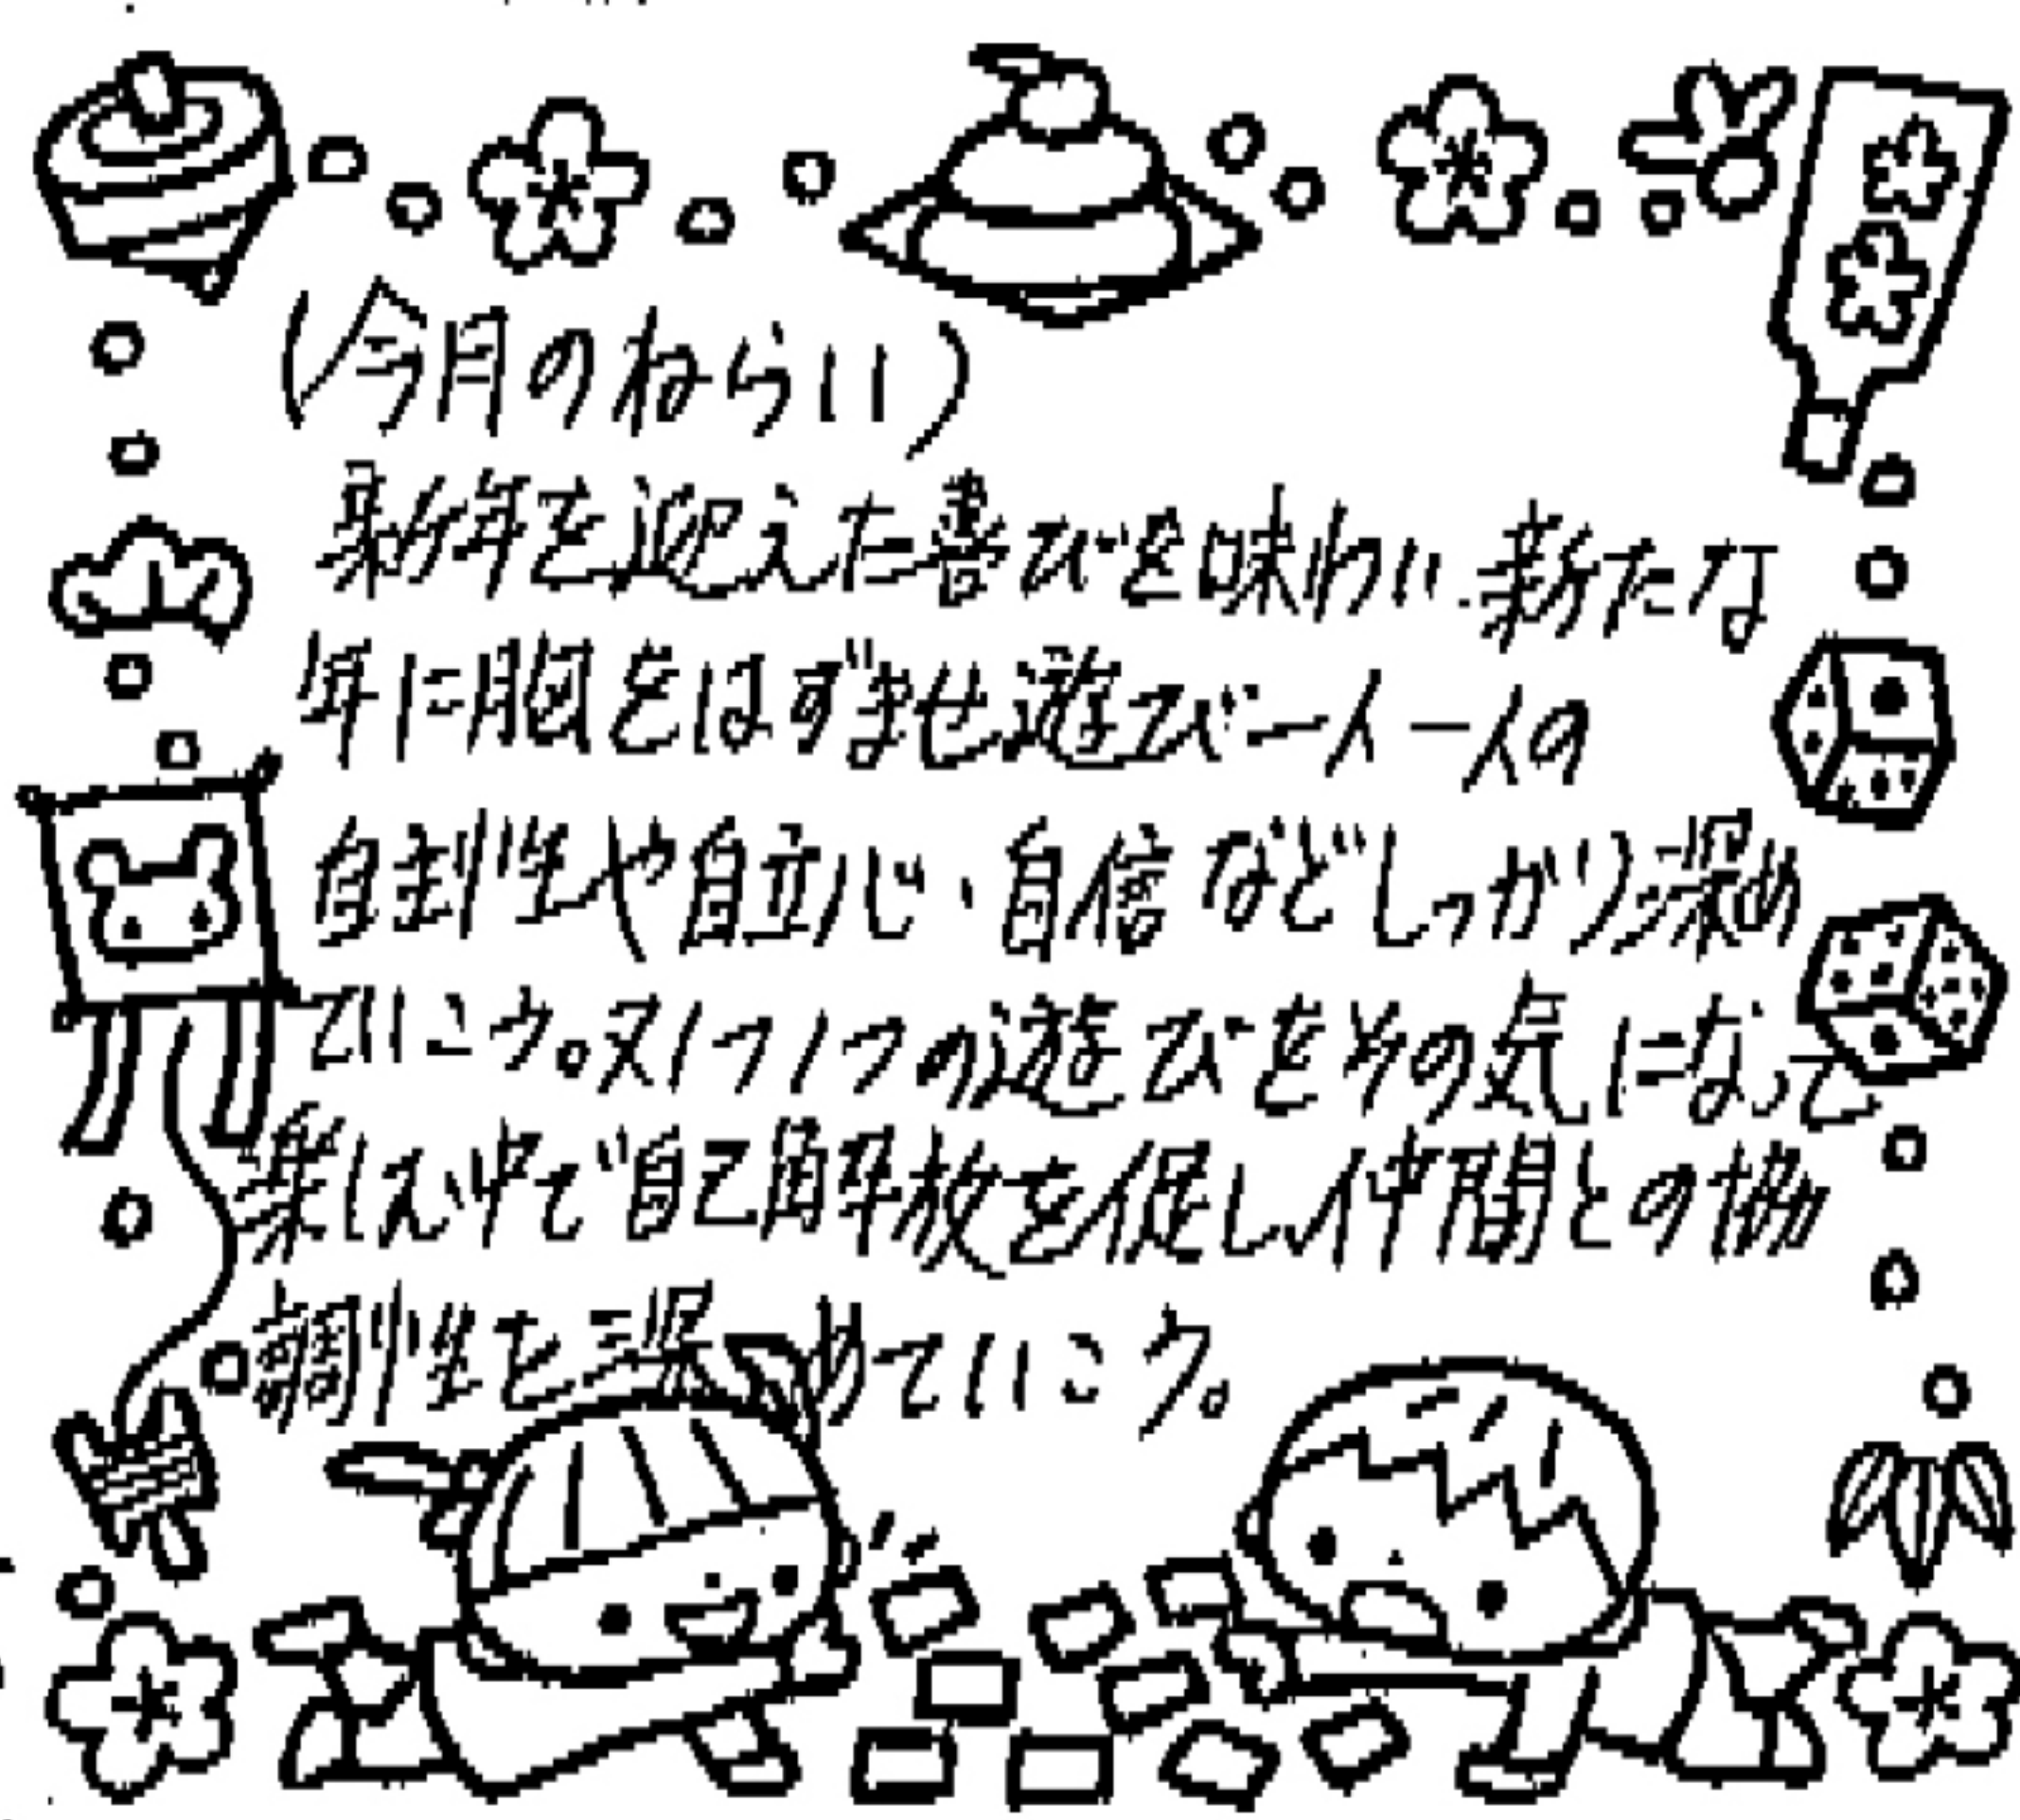 (今月のねらい)
新年を迎えた喜びを味わい、新たな
年に胸をはずませ遊び一人一人の
自主性や自立心、自信などしっかり深め
ていこう。又1つ1つの遊びをその気になって
楽しむ中で自己解放を促し仲間との協
調性を深めていこう。